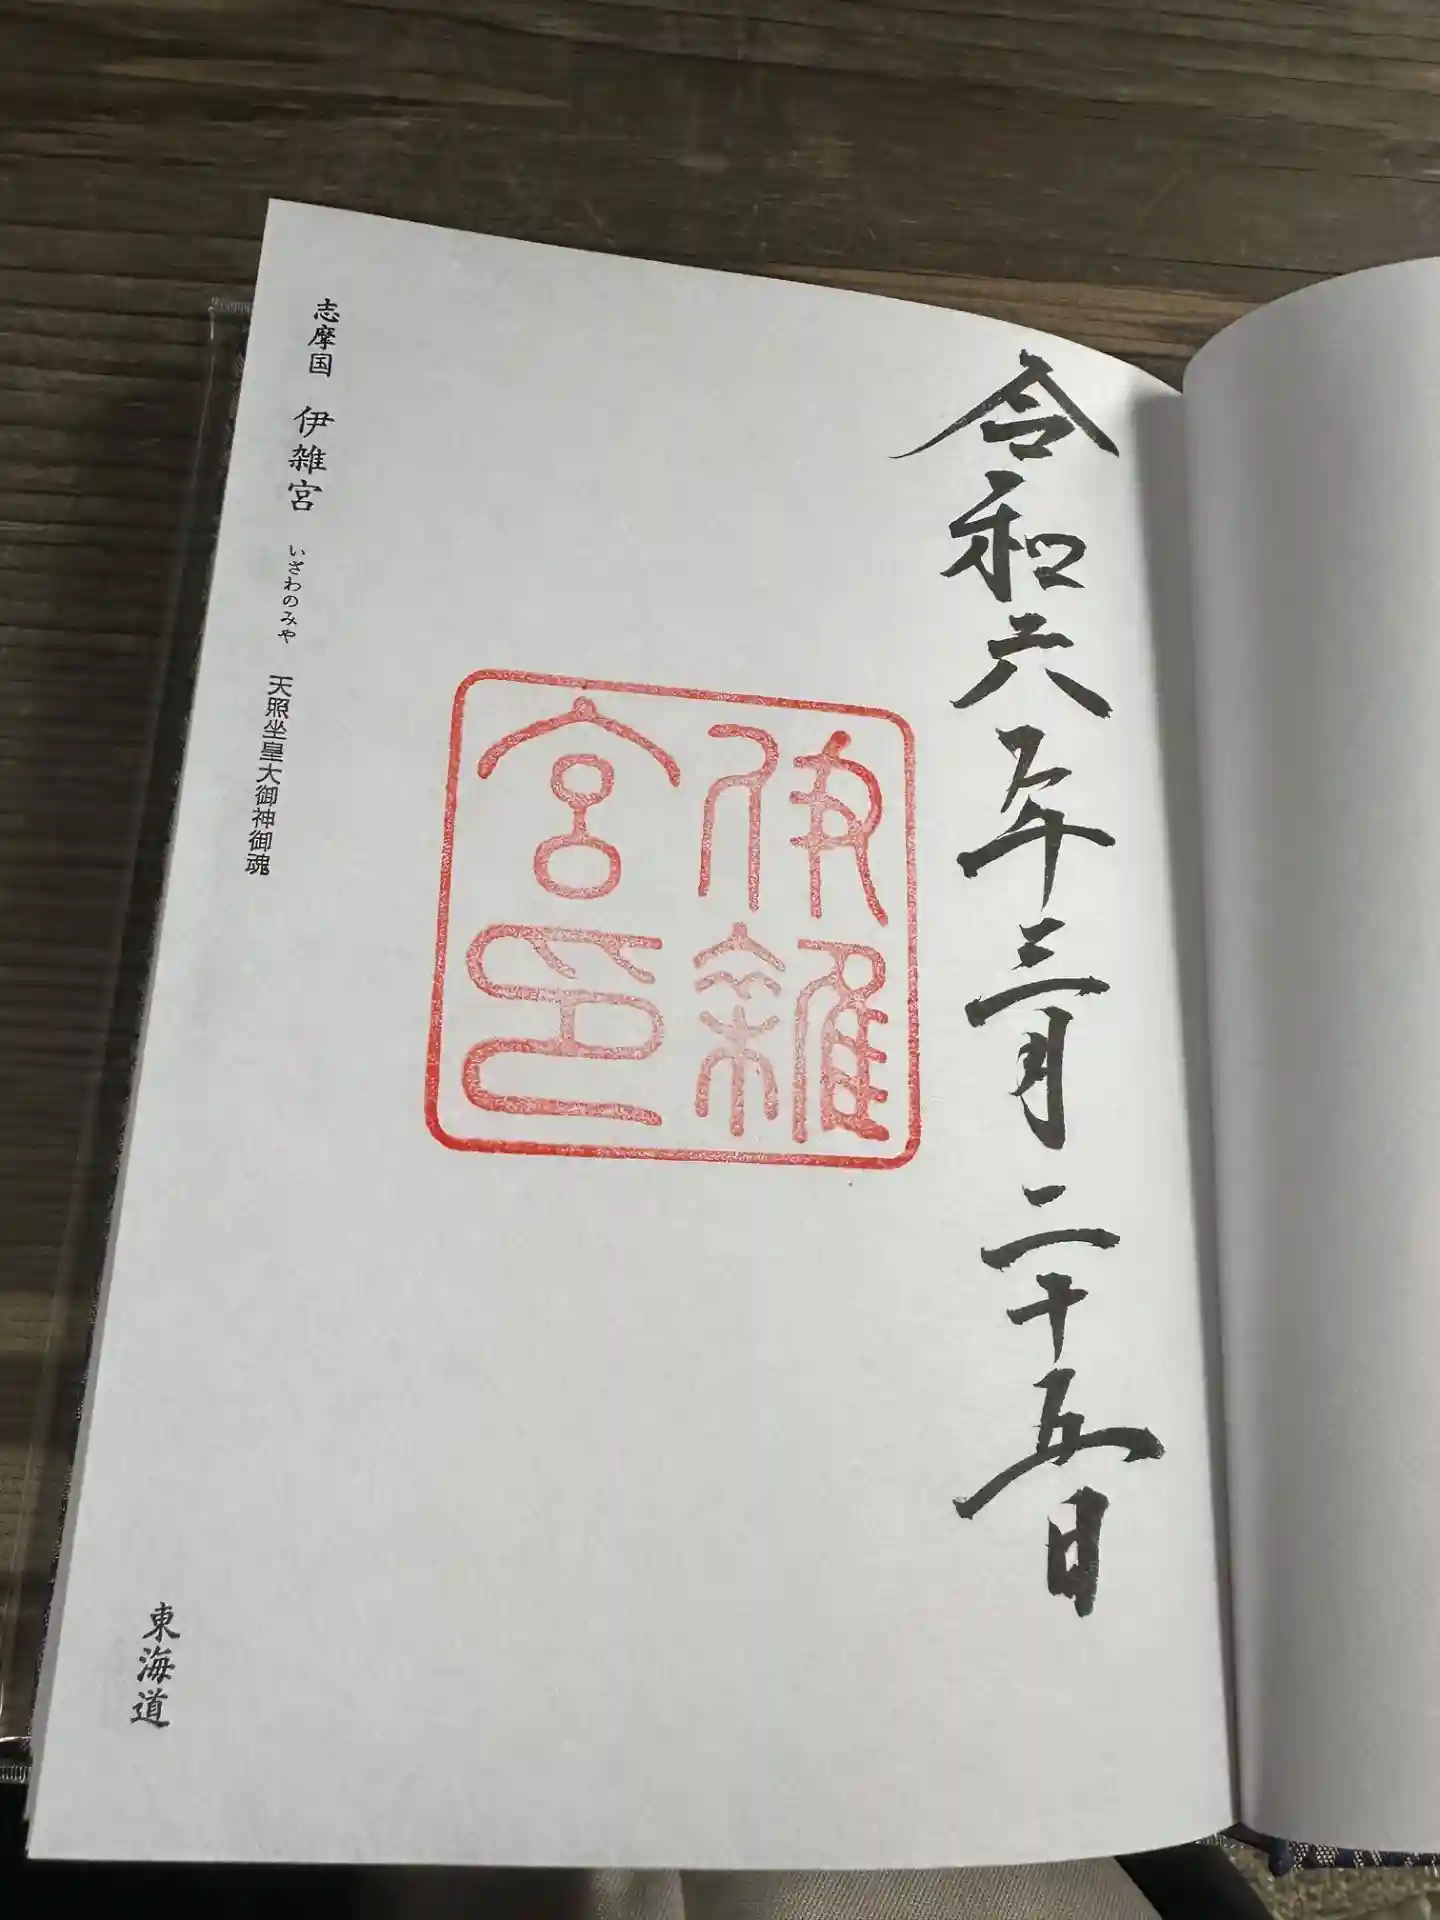 令和六年三月二十五日
伊雑
宮印
志摩国 伊雑宮 いざわのみや 天照坐皇大御神御魂
東海道